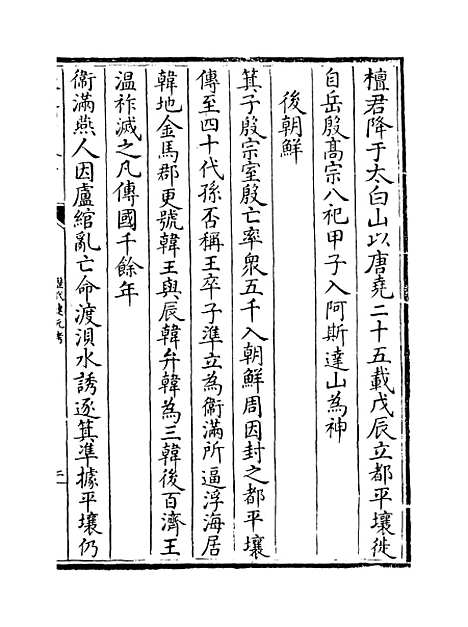 檀君降于太白山以唐堯二十五載戊辰立都平壤徙
白岳殷髙宗八祀甲子入阿斯達山為神
後朝鮮
箕子殷宗室殷亡率衆五千入朝鮮周因封之都平壤
傳至四十代孫否稱王卒子準立為衞滿所逼浮海居
韓地金馬郡更號韓王與辰韓弁韓為三韓後百濟王
温祚滅之凡傳國千餘年
衞滿燕人因盧綰亂亡命渡浿水誘逐箕準據平壤仍
歴代建元考